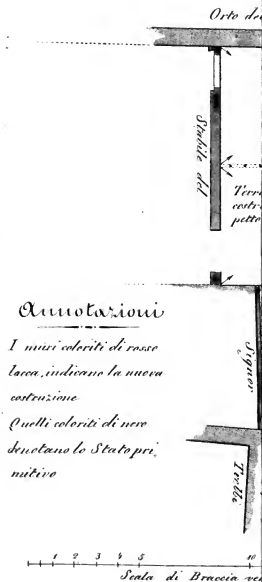 Orto de
Stabile del
Terr
costr
petto
Annotazioni
I muri coloriti di rosso
lacca, indicano la nuova
costruzione
Quelli coloriti di nero
denotano lo Stato pri,
mitivo
Signor
Tirelli
1 2 3 4 5 10
Scala di Braccia ve